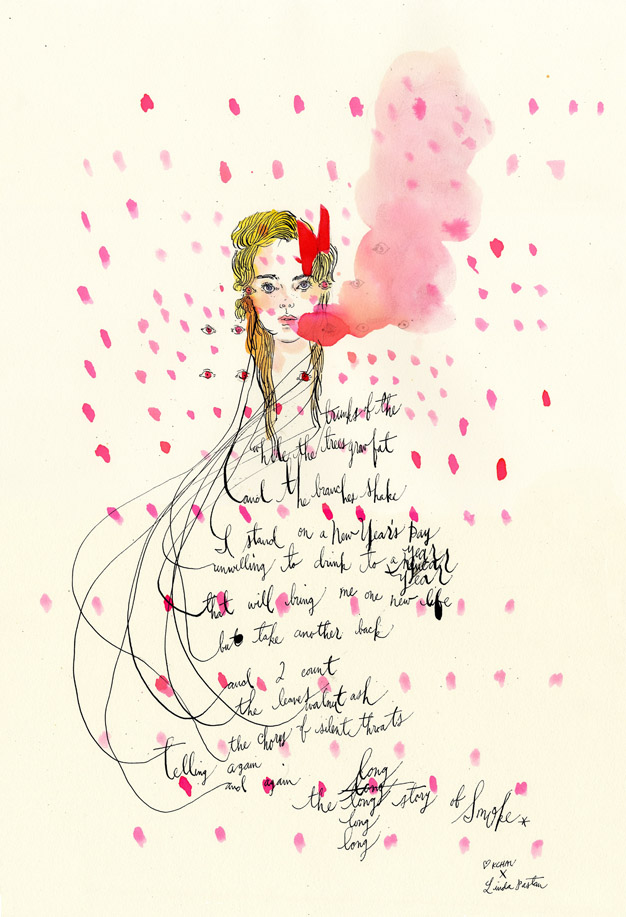 trunks of the
while the trees grow fat
and the branches shake
I stand on a New Year's Day
unwilling to drink to a year
year
that will bring me one new life
but take another back
and I count
the leaves walnut ash
the chorus of silent throats
telling again
and again
long
long
the long story of Smoke*
long
long
♡ KCHM
X
Linda Pastan